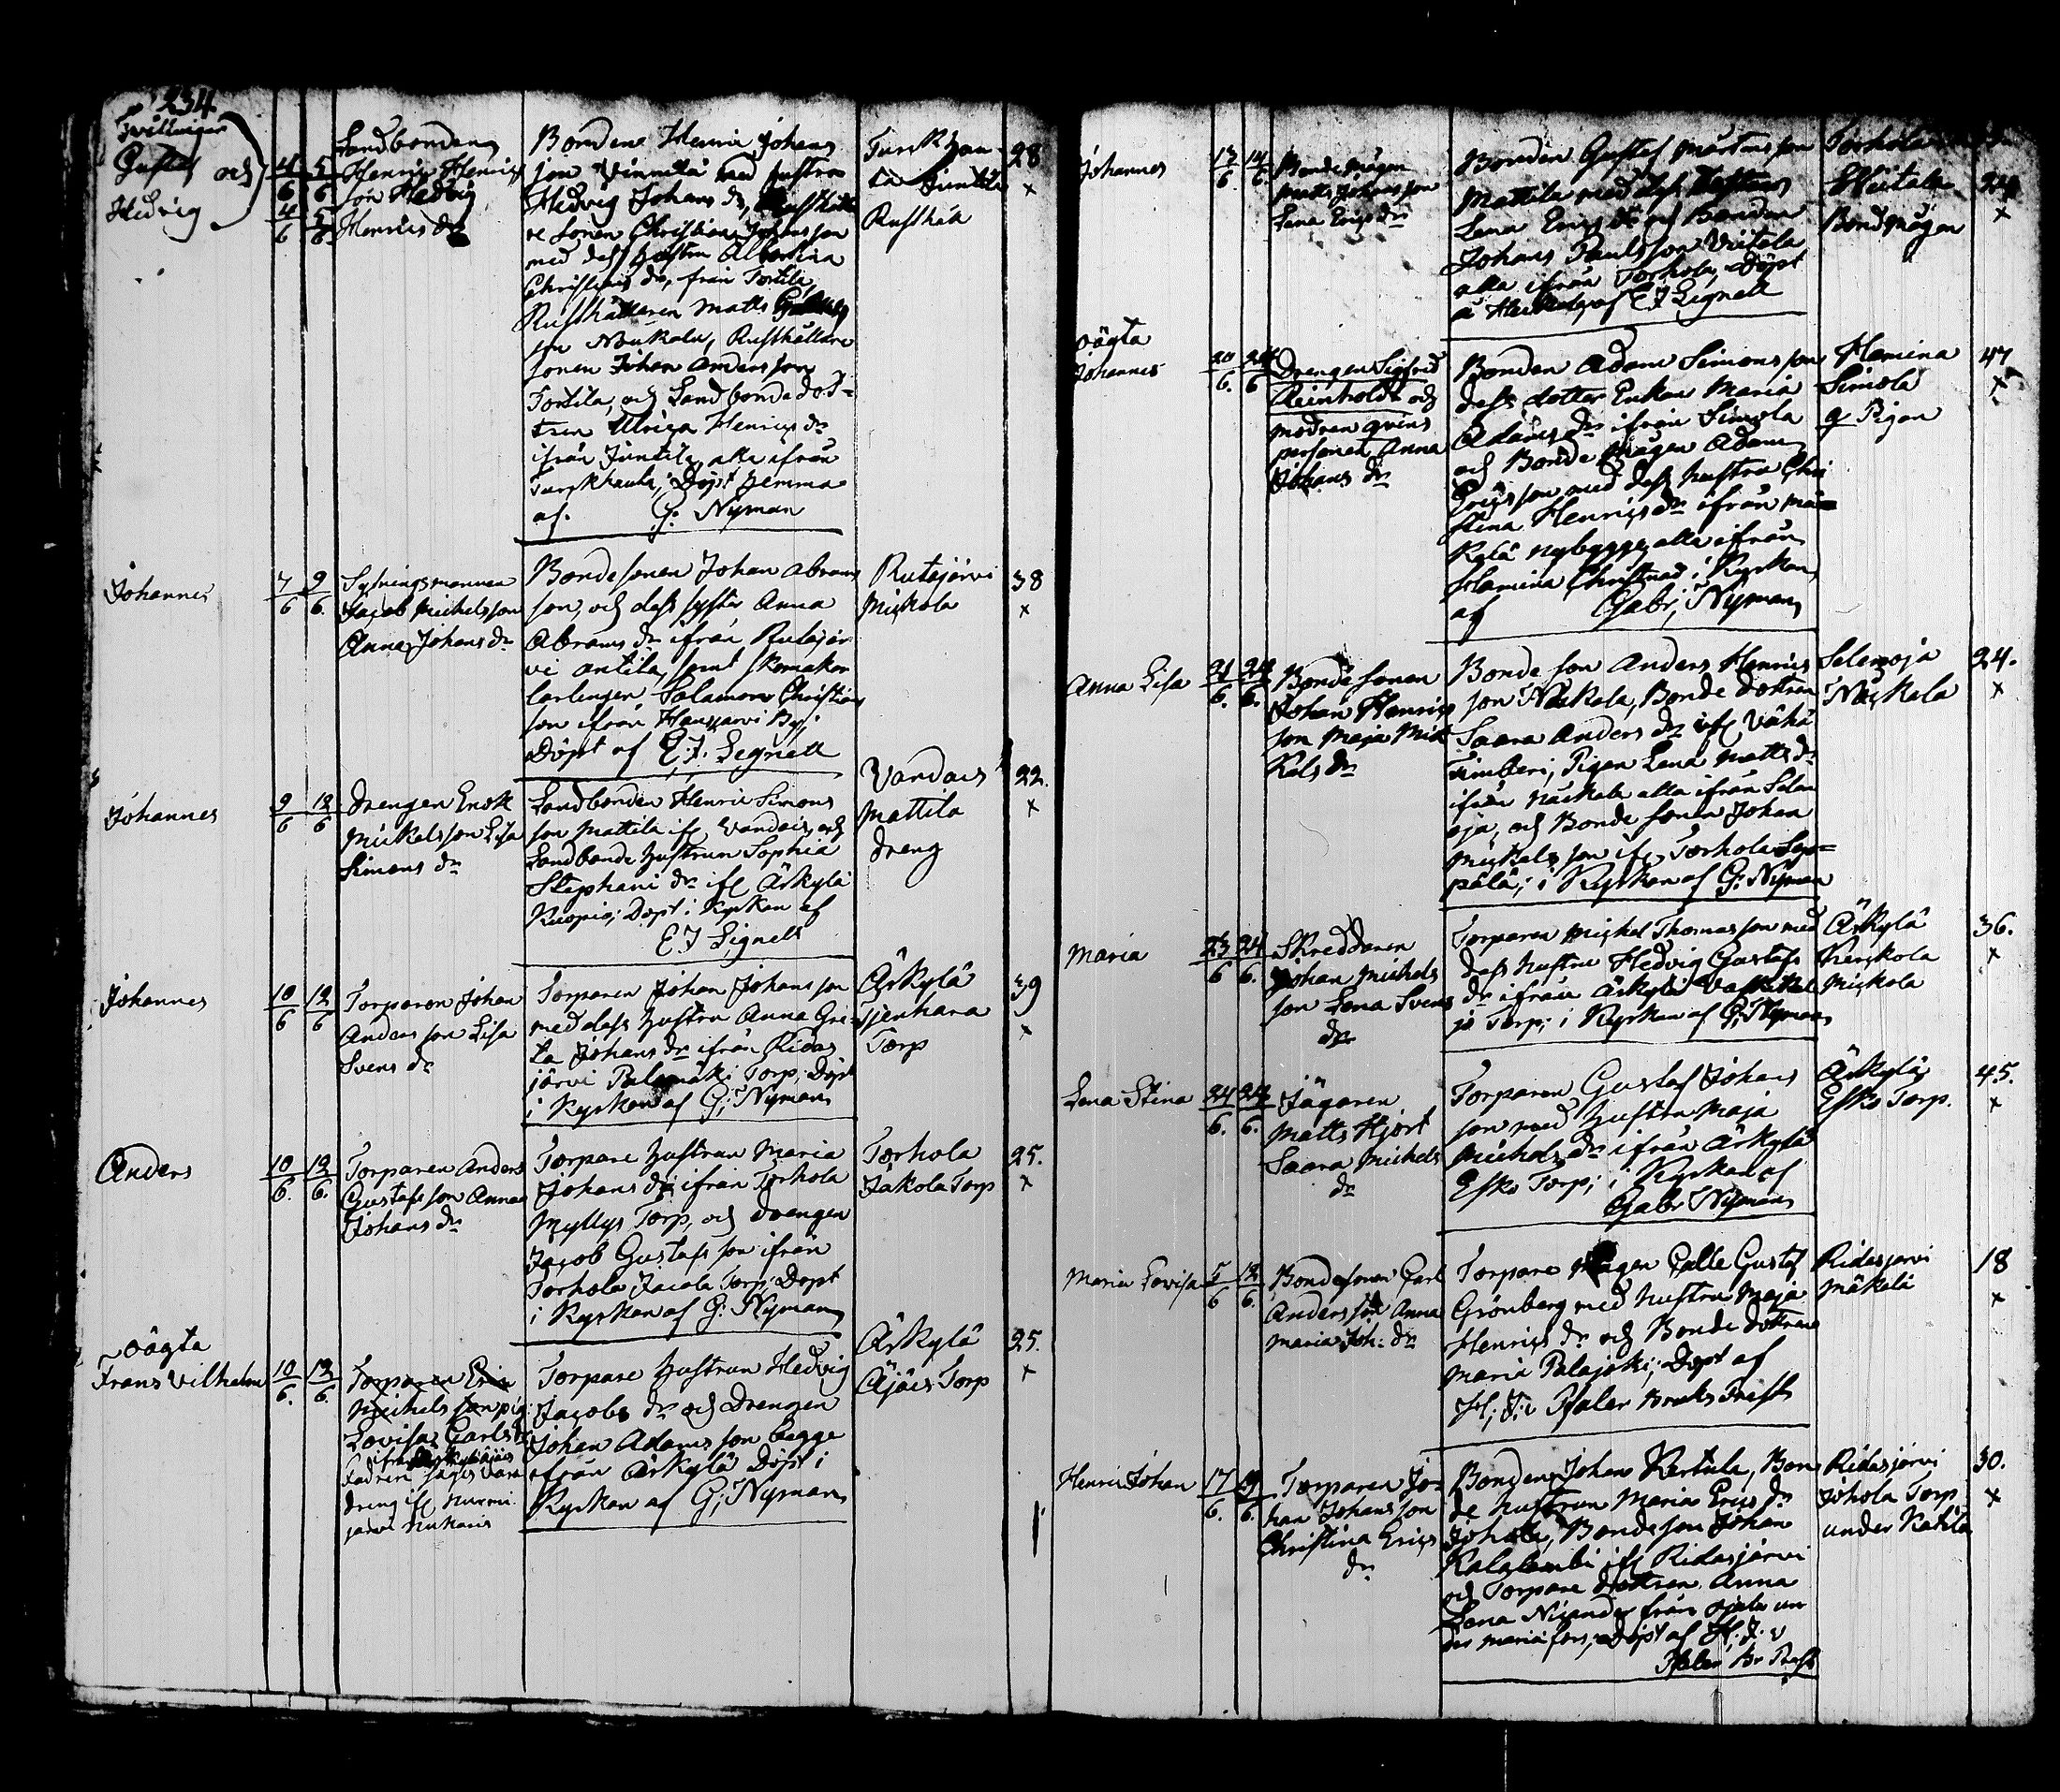 234.
Tvillingar
Gustaf och
Hedvig
4/6 5/6
4/6 5/6
Landbonden
Henric Henrics
son Hedvig
Henrics dr
Bonden Henric Johans
son med hustru
Hedvig Johans dr,
re sonen Christian Johansson
med dess hustru Albertina
Christians dr, från Tortila,
Rusthållaren Matts
son Noukala, Rusthållare
sonen Johan Andersson
Tortila, och Landbonde dot-
tren Ulrica Henrics dr
ifrån Juntila alla ifrån
Turkhauta; Döpt hemma
af. G: Nyman
Turkhau-
ta Juntila
Rusthåll
28
x
Johannes
7/6 9/6.
Sytningsmannen
Jacob Michelsson
Anna Johans dr
Bondesonen Johan Abrams
son, och dess syster Anna
Abrams dr ifrån Rutajär
vi Antila, samt skomakar
lärlingen Salamon Christians
son ifrån Hausjärvi By;
Döpt af E.J. Lignell
Rutajärvi
Mickola
38
x
Johannes
9/6 12/6
Drengen Enok
Mickelsson Lisa
Simons dr
Landbonden Henric Simons
son Mattila if Vandais, och
Landbonde hustrun Sophia
Stephani dr if Ärkylä
Kuopio; Döpt i Kyrkan af
E J Lignell
Vandais
Mattila
dreng
22.
x
Johannes
10/6 12/6
Torparen Johan
Andersson Lisa
Svens dr
Torparen Johan Johansson
med dess hustru Anna Gre-
ta Johans dr ifrån Ridas
järvi Palomäki Torp; Döpt
i Kyrkan af G; Nyman
Ärkylä
Torp
39
x
Anders
10/6. 12/6.
Torparen Anders
Gustafsson Anna
Johans dr
Torpare hustrun Maria
Johans dr ifrån Torhola
Myllys Torp, och drengen
Jacob Gustafsson ifrån
Torhola Jacola Torp; Döpt
i Kyrkan af G: Nyman
Torhola
Jakola Torp
25.
x
oägta
Frans Vilhelm
10/6. 12/6.
Torparen Eric
Michelsson pig
Lovisa Carls dr
Fadren säges vara
dreng if Nurmi
järvi Nukaris
Torpare hustrun Hedvig
Jacobs dr och drengen
Johan Adamsson begge
ifrån Ärkylä Döpt i
Kyrkan af G; Nyman
Ärkylä
Äjäis Torp
25.
x
Johannes
13/6. 14/6.
Bondemågen
Matts Johansson
Lena Erics dr
Bonden Gustaf Mårtensson
Mattila med dess hustru
Lena Erics dr och Bonden
Johans Paulsson Vietala
alla ifrån Torhola, Döpt
af E J Lignell
Torhola
Bondmågen
24
x
oägta
Johannes
20/6. 24/6
Drengen Sigfrid
Reinholdt och
modren qvins
personen Anna
Johans dr
Bonden Adam Simonsson
dess dotter Enkan Maria
Adams dr ifrån Simola
och Bonde mågen Adam
Ericsson med dess hustru Chri
stina Henrics dr ifrån Mä-
kylä nybygge alla ifrån
Hamina Christnad i Kyrkan
af Gabr; Nyman
Hamina
Simola
g Pigan
47
x
Anna Lisa
21/6. 24/6.
Bonde sonen
Johan Henrics
son Maja Mic
kels dr
Bonde son Anders Henrics
son Näckela, Bonde dottren
Saara Anders dr if Vähä
Timberi; Pigan Lena Matts dr
ifrån Näckela alla ifrån Selen
oja, och Bonde sonen Johan
Mickelsson if Torhola Sep-
pälä; i Kyrkan af G; Nyman
Selenoja
Näckela
24.
x
Maria
23/6 24/6.
Skreddaren
Johan Michels
son Lena Svens
dr
Torparen Michel Thomasson med
dess hustru Hedvig Gustafs
dr ifrån Ärkylä
Torp; i Kyrkan af G; Nyman
Ärkylä
Mickola
36.
x
Lena Stina
24/6. 24/6.
Jägaren
Matts Hjort
Saara Michels
dr
Torparen Gustaf Johans
son med hustru Maja
Michels dr ifrån Ärkylä
Esko Torp; i Kyrkan af
Gabr Nyman
Ärkylä
Esko Torp.
45.
x
Maria Lovisa
5/6 12/6.
Bondesonen Carl
Andersson Anna
Maria Joh: dr
Torpare mågen Calle Gustaf
Grönberg med hustru Maja
Henrics dr och Bonde dottren
Maria Palajoki; Döpt af
Pfaler Bruks Prest
Ridasjervi
Mäkelä
18
x
Henric Johan
17/6. 19/6.
Torparen Jo-
han Johansson
Christina Erics
dr
Bonden Johan Kertula, Bon
de hustrun Maria Erics dr
Johola, Bondeson Johan
Kalalambi if Ridasjärvi
och Torpare dottren Anna
Lena Nicander från Ojala un
der Mariæfors; Döpt af
Pfaler Br Prest
Ridasjärvi
Johola Torp
under Katila
30.
x